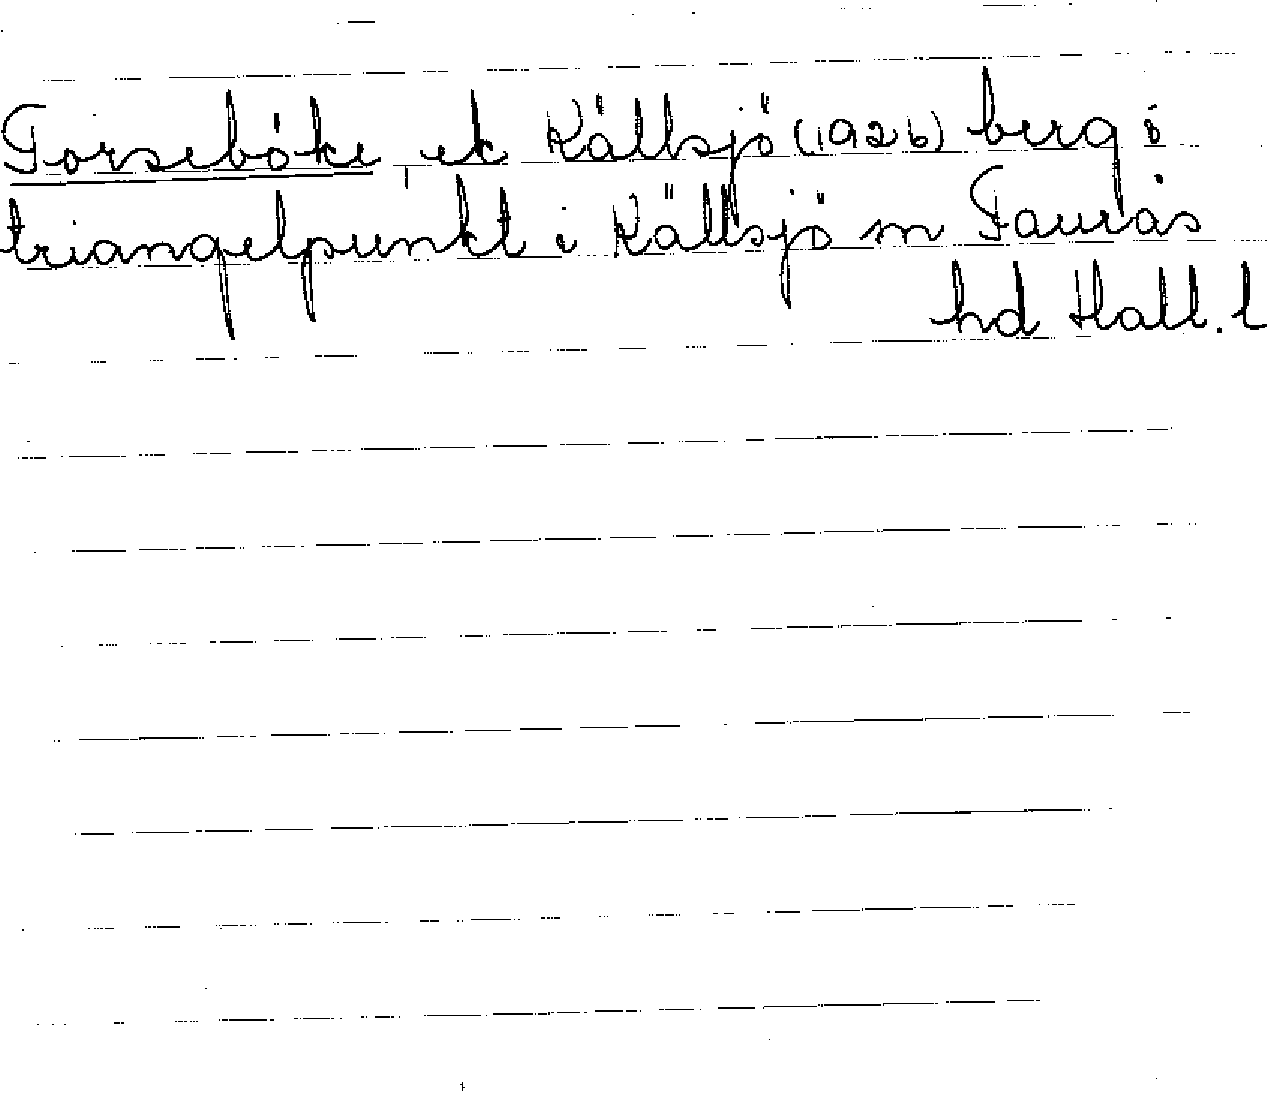 Torseböke, ek Källsjö (1926) berg ö
triangelpunkt i Källsjö sn Faurås
hd Hall. l